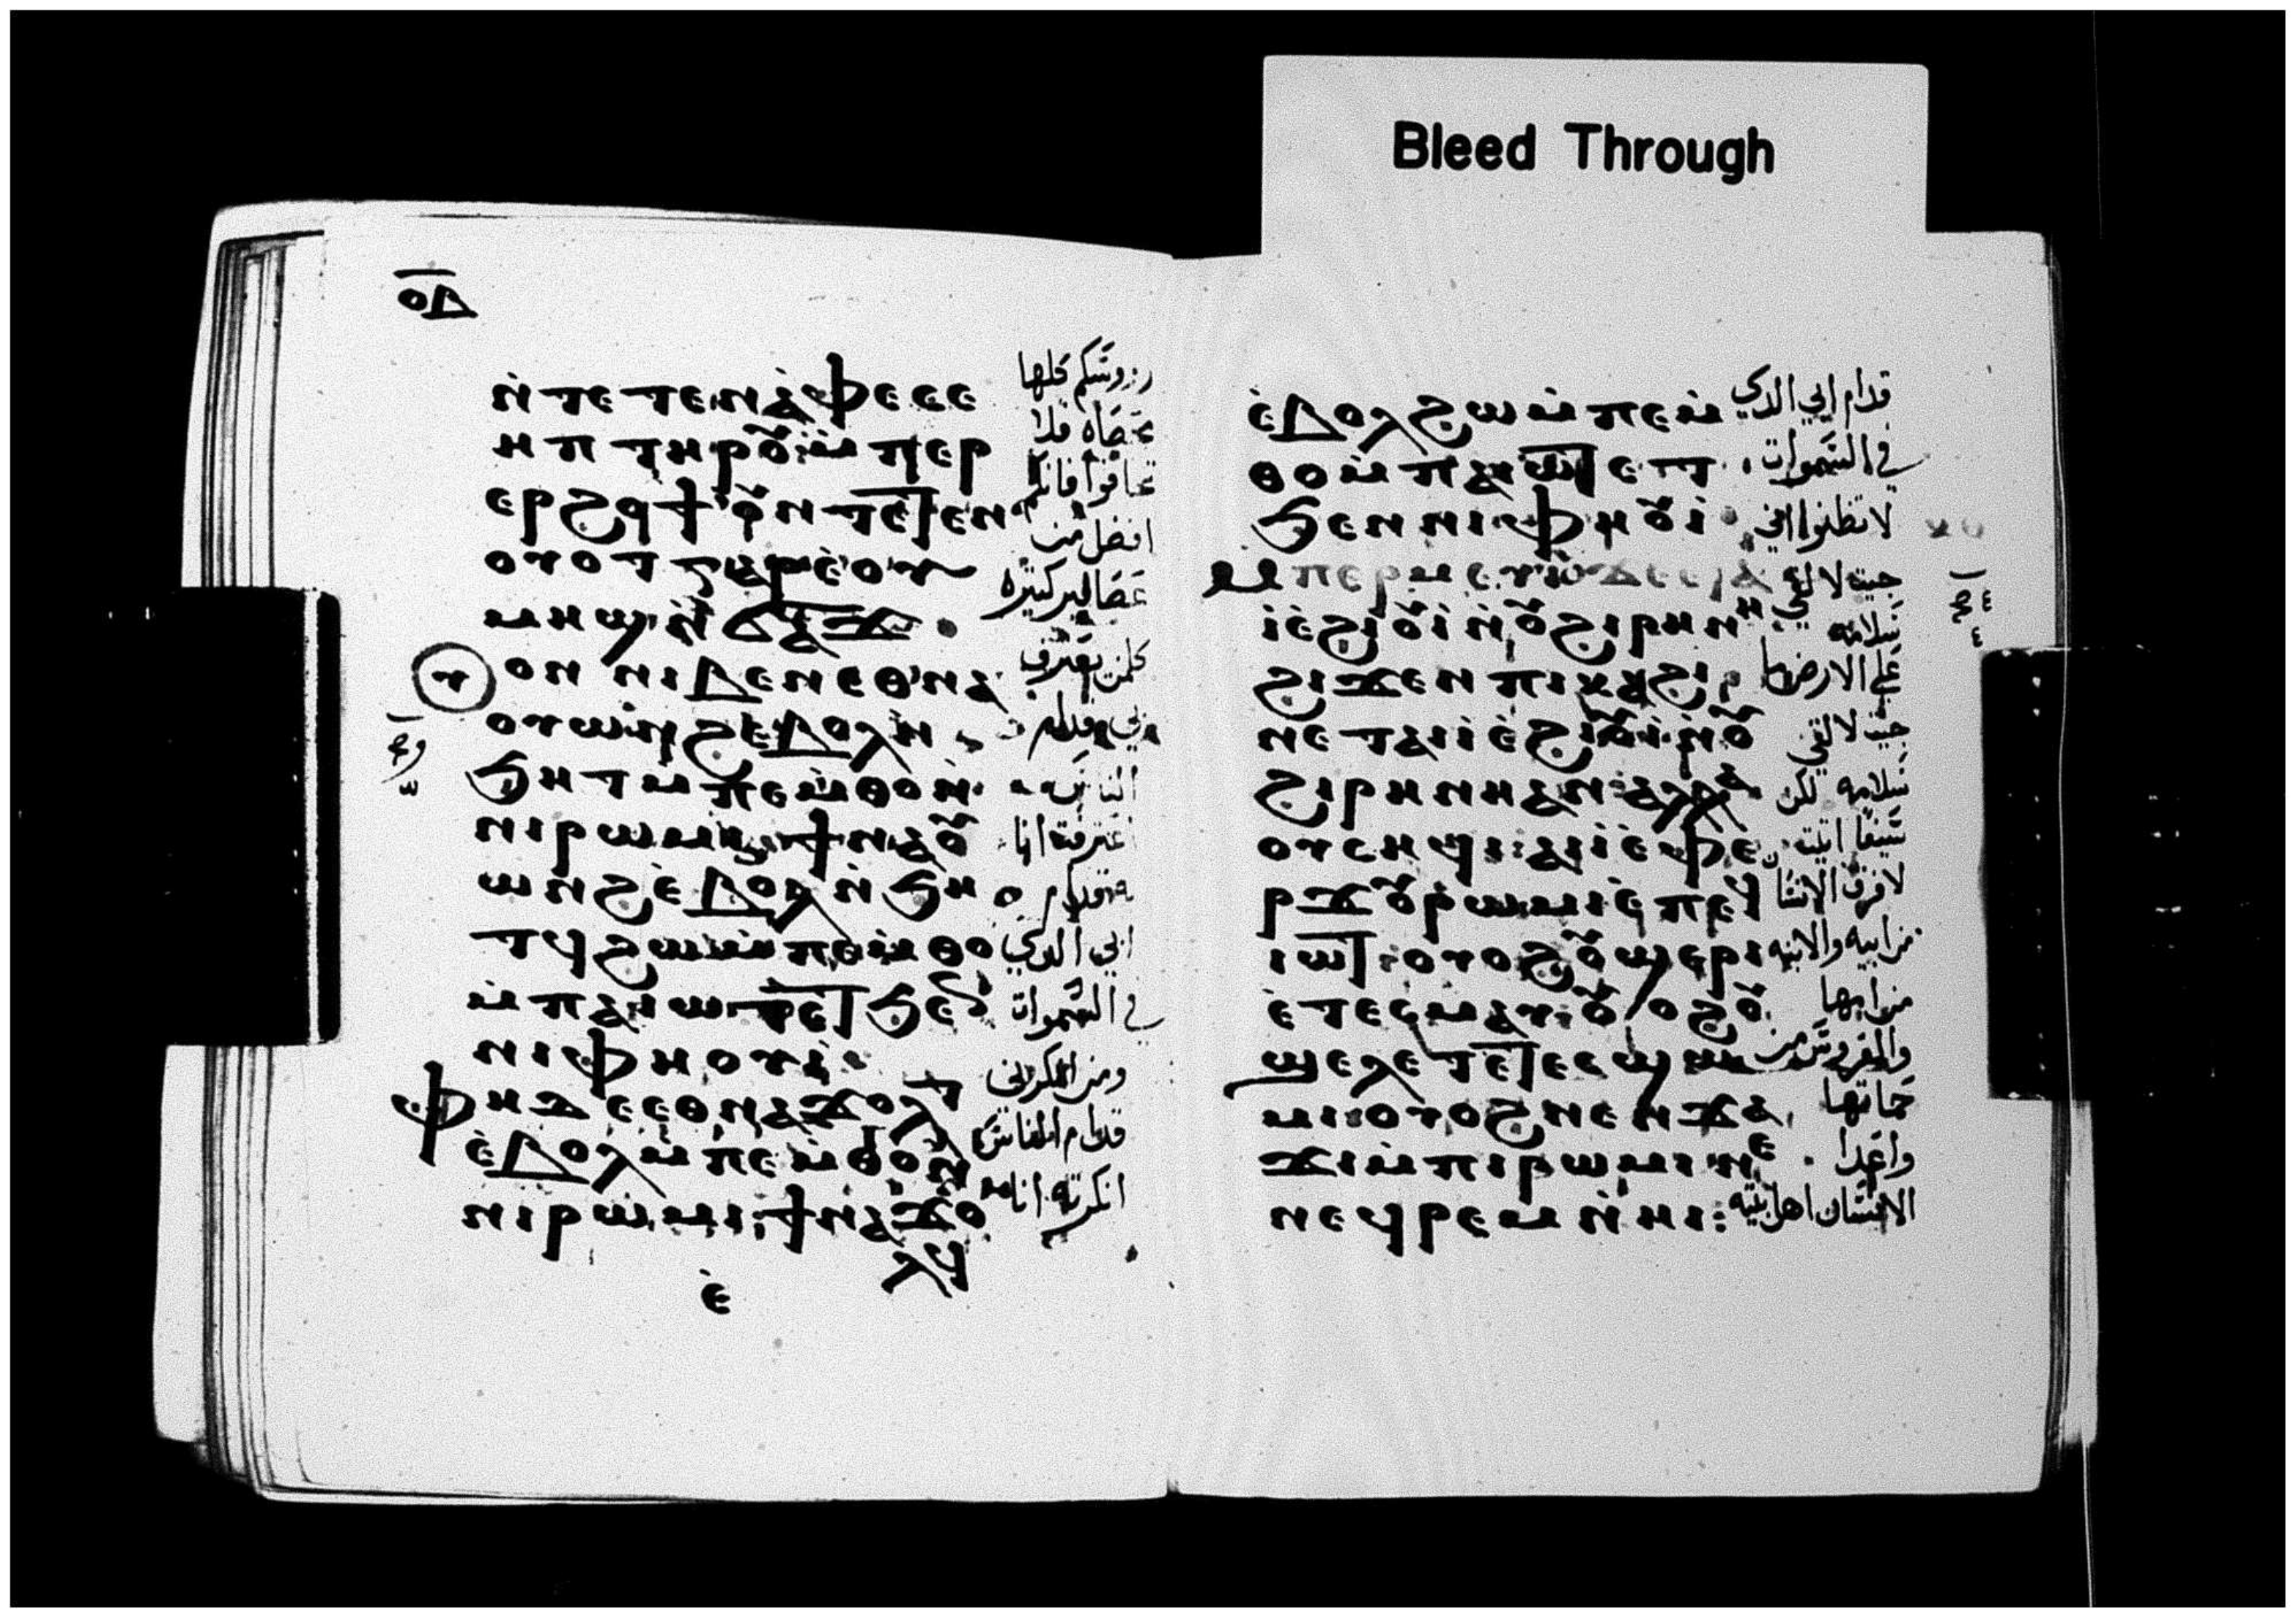 ⲟⲇ̅
ⲛ̀ⲧⲉ ⲧⲉⲛⲁ̀ⲫⲉ ⲥⲉ
ⲏⲡ ⲧⲏⲣⲟⲩ ⲙ̀ⲡⲉⲣ
ⲉⲣϩⲟϯ ⲟⲩⲛ ⲧⲉⲧⲉⲛ
ⲟⲩⲟⲧ ⲅⲁⲣ ⲉ̀ⲟⲩ
ⲙⲏϣ ⲛ̀ϭⲁϫ
ⲟⲩⲟⲛ ⲛⲓⲃⲉⲛ ⲉⲑⲛⲁ
ⲟⲩⲱⲛϩ ⲉⲃⲟⲗ ⲛ̀
ϧⲏⲧ ⲙ̀ⲡⲉⲙ̀ⲑⲟ ⲛ̀
ⲛⲓⲣⲱⲙⲓ ϯⲛⲁⲟⲩ
ⲱⲛϩ ⲉ̀ⲃⲟⲗ ⲛ̀ϧⲏ
ⲧϥ ϩⲱ ⲙ̀ⲡⲉⲙ̀ⲑⲟ
ⲙ̀ⲡⲁⲓⲱⲧ ⲉⲧϧⲉⲛ
ⲛⲓⲫⲏⲟⲩⲓ
ⲫⲏ ⲇⲉ ⲉⲑⲛⲁϫⲟⲗⲧ
ⲉ̀ⲃⲟⲗ ⲙ̀ⲡⲉⲙ̀ⲑⲟ ⲛ̀
ⲛⲓⲣⲱⲙⲓ ϯⲛⲁϫⲟ
ⲗϥ
ⲉ̀
روسكم كلها
محصاه فلا
تخافوا فانكم
افضل من
عصافير كثيره
كلمن يعترف
بي قدام
الناس
اعترفت انا
به قدام
ابي الدي
في السموات
ومن انكرني
قدام الناس
انكرته انا
Bleed Through
ⲉ̀ⲃⲟⲗ ϩⲱ ⲙ̀ⲡⲉⲙ̀
ⲑⲟ ⲙ̀ⲡⲁⲓⲱⲧ ⲉⲧ
ϧⲉⲛ ⲛⲓⲫⲏⲟⲩⲓ
ⲙⲡⲉⲣⲙⲉⲩⲓ ϫⲉ ⲉⲧⲁ
ⲓⲉ̀ϩⲓⲟⲩⲓ ⲛ̀ⲟⲩϩⲓⲣⲏⲛⲏ
ϩⲓϫⲉⲛ ⲡⲓⲕⲁϩⲓ
ⲛⲉⲧⲁⲓⲓ̀ ⲉ̀ϩⲓⲟⲩⲓ ⲛ̀ⲟⲩ
ϩⲓⲣⲏⲛⲏ ⲁⲛ ⲁⲗⲗⲁ
ⲟⲩⲥⲏϥⲓ ⲁⲓⲓ̀ ⲉ̀ⲫⲉ
ⲣϫ ⲟⲩⲣⲱⲙⲓ ⲉ̀ⲡⲉϥ
ⲓⲱⲧ ⲟⲩⲟϩ ⲟⲩϣⲉⲣⲓ
ⲉ̀ⲧⲉⲥⲙⲁⲩ ⲟⲩⲟϩ ⲟⲩ
ϣⲉⲗⲉⲧ ⲉ̀ⲧⲉⲥϣⲱ
ⲙⲓ ⲟⲩⲟϩ ⲛⲉⲛϫⲁ
ϫⲓ ⲙ̀ⲡⲓⲣⲱⲙⲓ ⲛⲉ
ⲛⲉϥⲣⲉⲙⲛ̀ⲏⲓ:
قدام ابي الدي
في السموات
لا تظنوا اني
جيت لا لقي
سلامه
علي الارض ما
جيت لا لقي
سلامه لكن
سيفا اتيت
لا فرق الانسان
من ابيه والابنه
من امها
والعروس من
حماتها
واعدا
الانسان اهل بيته